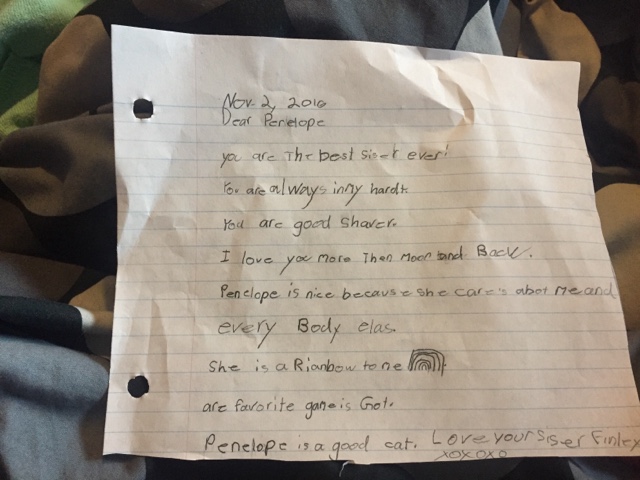 Nov. 2, 2016
Dear Penelope
you are The best siser ever!
You are always in my hardt
You are good Shaver.
I love you more Then Moon and Back.
Penelope is nice because she care's abot Me and
every Body elas.
She is a Rianbow to ne
are favorite game is Got.
Penelope is a good cat. Love your siser Finley
XOXOXO